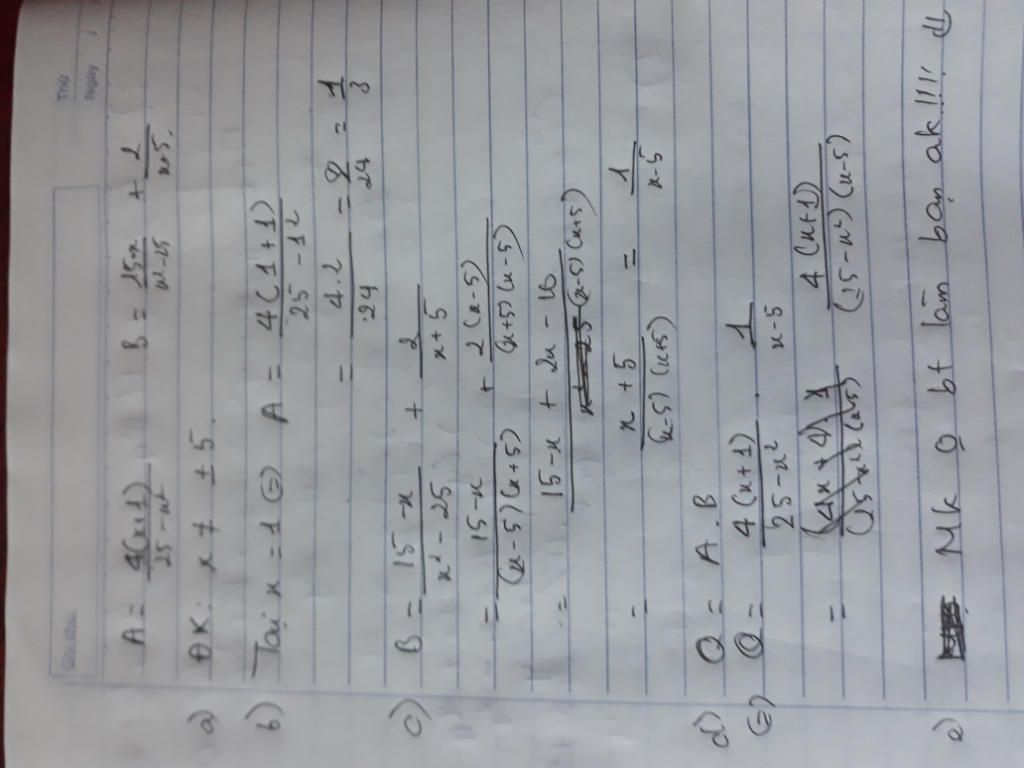 Thứ
Ngày
A = 4(x+1)/(25-x²) B = (15-x)/(x²-25) + 2/(x+5).
a) ĐK: x ≠ ±5.
b) Tại x = 1 (=) A = 4(1+1)/(25-1²)
= 4.2/24 = 8/24 = 1/3
c) B = (15-x)/(x²-25) + 2/(x+5)
= (15-x)/((x-5)(x+5)) + 2(x-5)/((x+5)(x-5))
= (15-x+2x-10)/((x-5)(x+5))
= (x+5)/((x-5)(x+5)) = 1/(x-5)
d) Q = A.B
(=) Q = 4(x+1)/(25-x²) . 1/(x-5)
= 4(x+1)/((25-x²)(x-5))
e) Mk o bt làm bạn ak!!!!